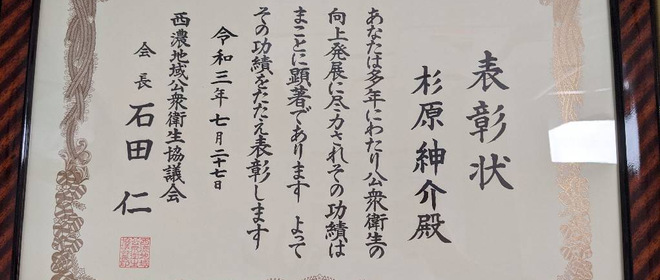 表彰状
杉原紳介殿
あなたは多年にわたり公衆衛生の
向上発展に尽力されその功績は
まことに顕著であります よって
その功績をたたえ表彰します
令和三年七月二十七日
西濃地域公衆衛生協議会
会長 石田 仁